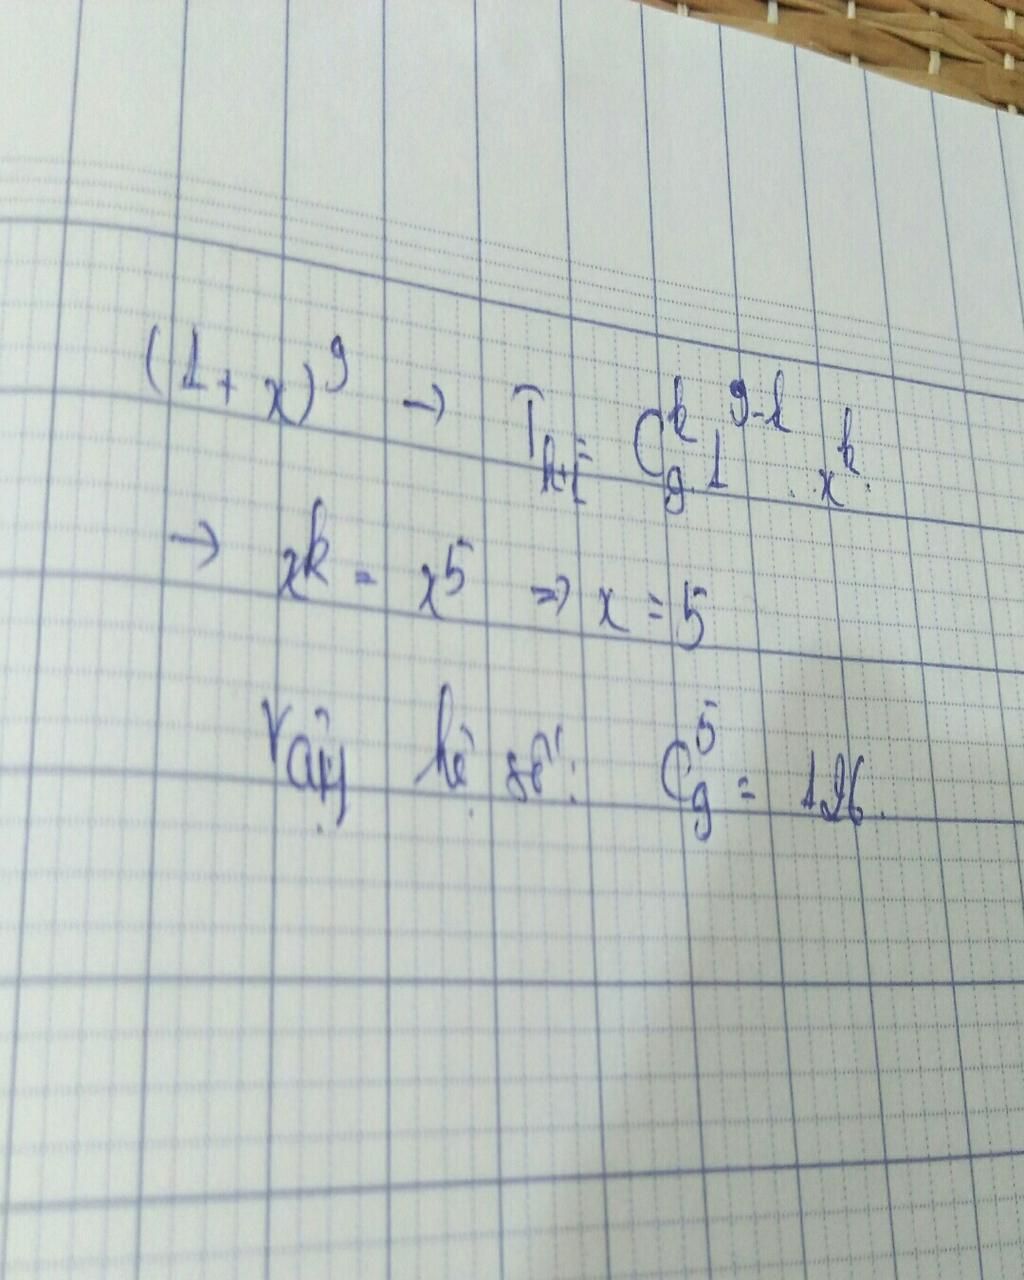 (1+x)⁹ → Tₖ₊₁ = C₉ᵏ 1⁹⁻ᵏ . xᵏ.
→ xᵏ = x⁵ ⇒ x = 5
Vậy hệ số: C₉⁵ = 126.